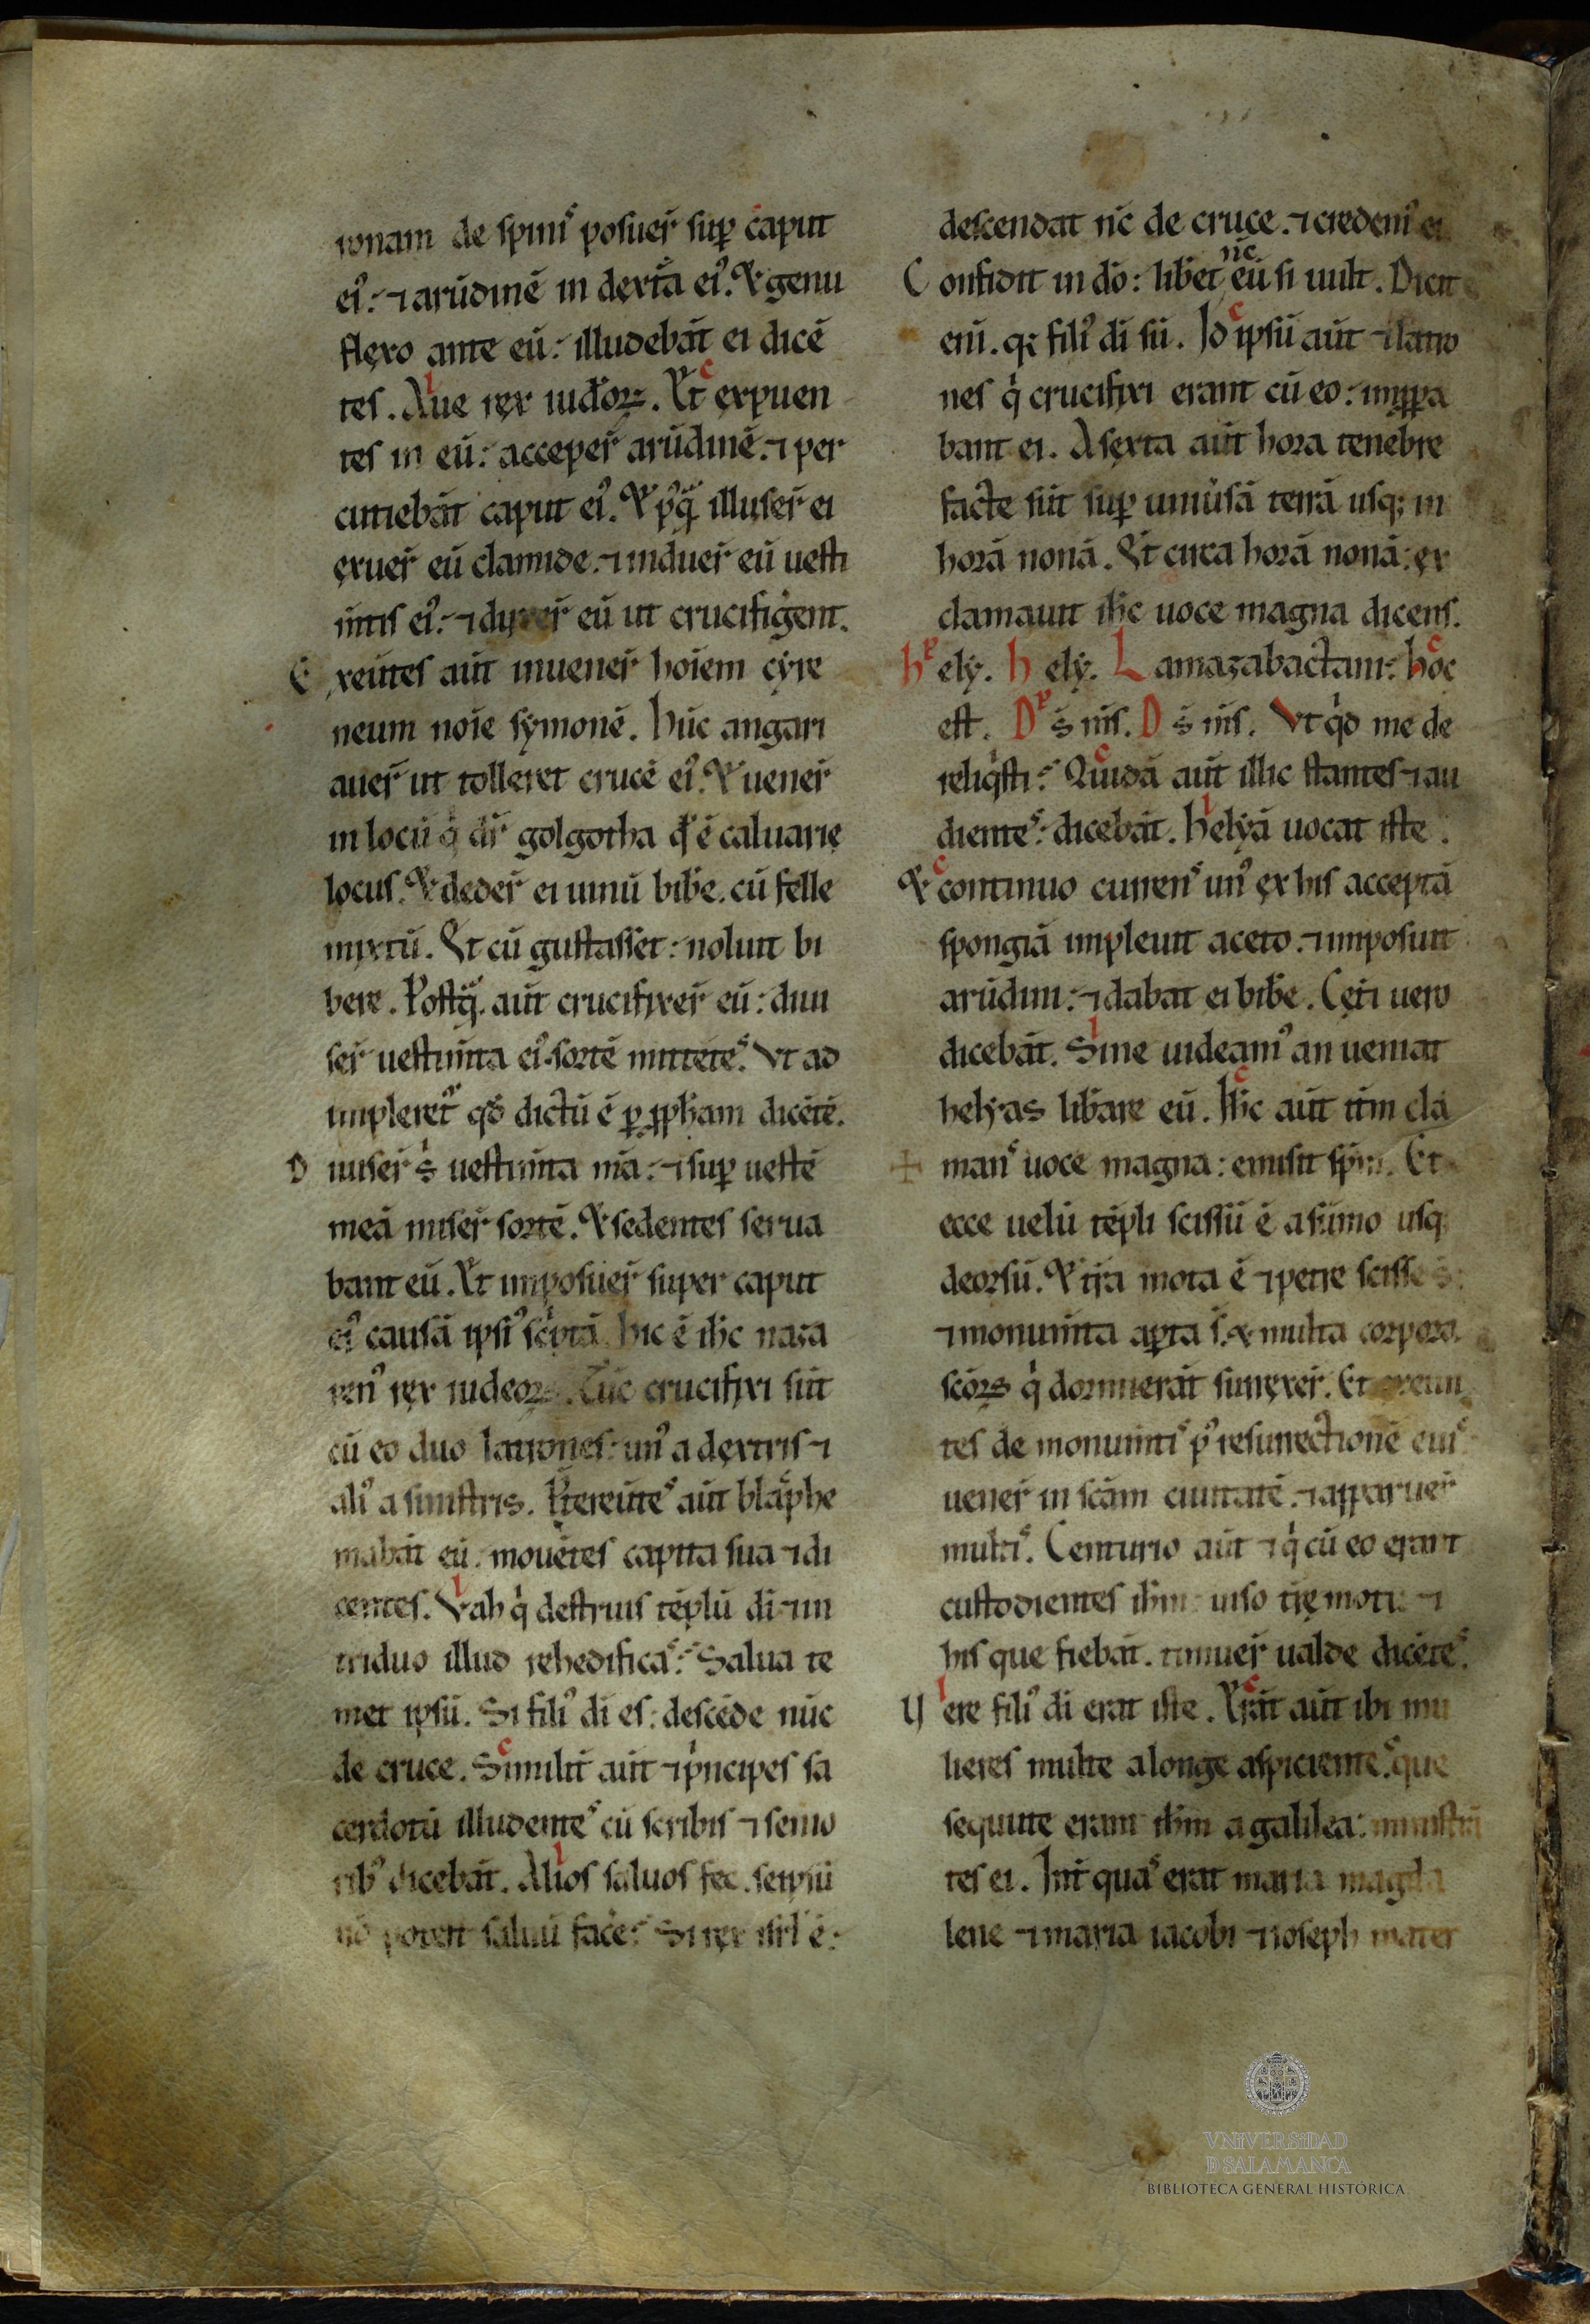 ronam de spinis posuer̄ sup̱ caput
ei᷒: ⁊ arūdinē in dext͛a ei᷒. Et genu
flexo ante eū: illudebāt ei dicē
tes. Aue rex iud̄oꝝ. Et expuen
tes in eū: acceper̄ arūdinē. ⁊ per
cutiebāt caput ei᷒. Et p᷒q̄ illuser̄ ei
exuer̄ eū clamide. ⁊ induer̄ eū uesti
m̄tis ei᷒: ⁊ duxer̄ eū ut crucifiger̄ent.
Exeūtes aūt inuener̄ hoīem cyre
neum noīe symonē. hūc angari
auer̄ ut tolleret crucē ei᷒. Et uener̄
in locū q̇ dr̄ golgotha qď ē caluarie
locus. Et deder̄ ei uinū bibe̅. cū felle
mixtū. Et cū gustasset: noluit bi
bere. Postq̄. aūt crucifixer̄ eū: diui
ser̄ uestim̄ta ei᷒. sortē mittētes. Vt ad
impleret᷑ qď dictū ē ꝑ ꝓph̄am dicētē.
Diuiser̄ ṡ uestim̄ta m̄a: ⁊ sup̱ uestē
meā miser̄ sortē. Et sedentes serua
bant eū. Et imposuer̄ super caput
ei᷒ causā ipsi᷒ sċptā. hic ē ih̄c naza
ren᷒ rex iudeoꝝ. Tūc crucifixi sūt
cū eo duo latrones: un᷒ a dextris ⁊
ali᷒ a sinistris. P̄tereūtes aūt blasphe
mabāt eū. mouētes capita sua ⁊ di
centes. Vah q̇ destruis tēplū di ⁊ in
triduo illud rehedificas: Salua te
met ipsū. Si fili᷒ di es: descēde nūc
de cruce. Similit̄ aūt ⁊ ṗncipes sa
cerdotū illudentes cū scribis ⁊ senio
rib᷒ dicebāt. Alios saluos fec. seipsū
nō potest saluū face̅: Si rex isrl̄ ē:
descendat nc̄ de cruce. ⁊ credem᷒ ei.
Confidit in dō: libet nc̄ eū si uult. Dixit
eni. q; fili᷒ di sū. Id ipsū aūt ⁊ latro
nes q̇ crucifixi erant cū eo: imꝓpa
bant ei. A sexta aūt hora tenebre
facte sūt sup̱ uniu̇sā terrā usq; in
horā nonā. Et circa horā nonā: ex
clamauit ih̄c uoce magna dicens.
hely. hely. Lamazabactani: hoc
est. Ds̄ m̄s. Ds̄ m̄s. Vt q̇d me de
reliq̇sti: Quidā aūt illic stantes ⁊ au
dientes: dicebāt. helyā uocat iste.
Et continuo currens un᷒ ex his acceptā
spongiā impleuit aceto. ⁊ imposuit
arūdini: ⁊ dabat ei bibe̅. Cet̄i uero
dicebāt. Sine uideam᷒ an ueniat
helyas libare eū. Ih̄c aūt it̄m cla
mans uoce magna: emisit spm̄. Et
ecce uelū tēpli scissū ē a sūmo usq;
deorsū. Et t̄ra mota ē ⁊ petre scisse s:
⁊ monum̄ta apta s̄. ⁊ multa corpora
scōꝝ q̇ dormierāt surrexer̄. Et exeun
tes de monum̄tis p᷒ resurrectionē eius
uener̄ in scām ciuitatē. ⁊ apparuer̄
multis. Centurio aūt ⁊ q̇ cū eo erant
custodientes ih̄m uiso t̄re motu ⁊
his que fiebāt. timuer̄ ualde dicētes.
Vere fili᷒ di erat iste. Erāt aūt ibi mu
lieres multe a longe aspicientes. que
sequute erant ih̄m a galilea: ministrā
tes ei. Int̄ quas erat maria magda
lene ⁊ maria iacobi ⁊ ioseph mater
VNIVERSIDAD
D SALAMANCA
BIBLIOTECA GENERAL HISTÓRICA